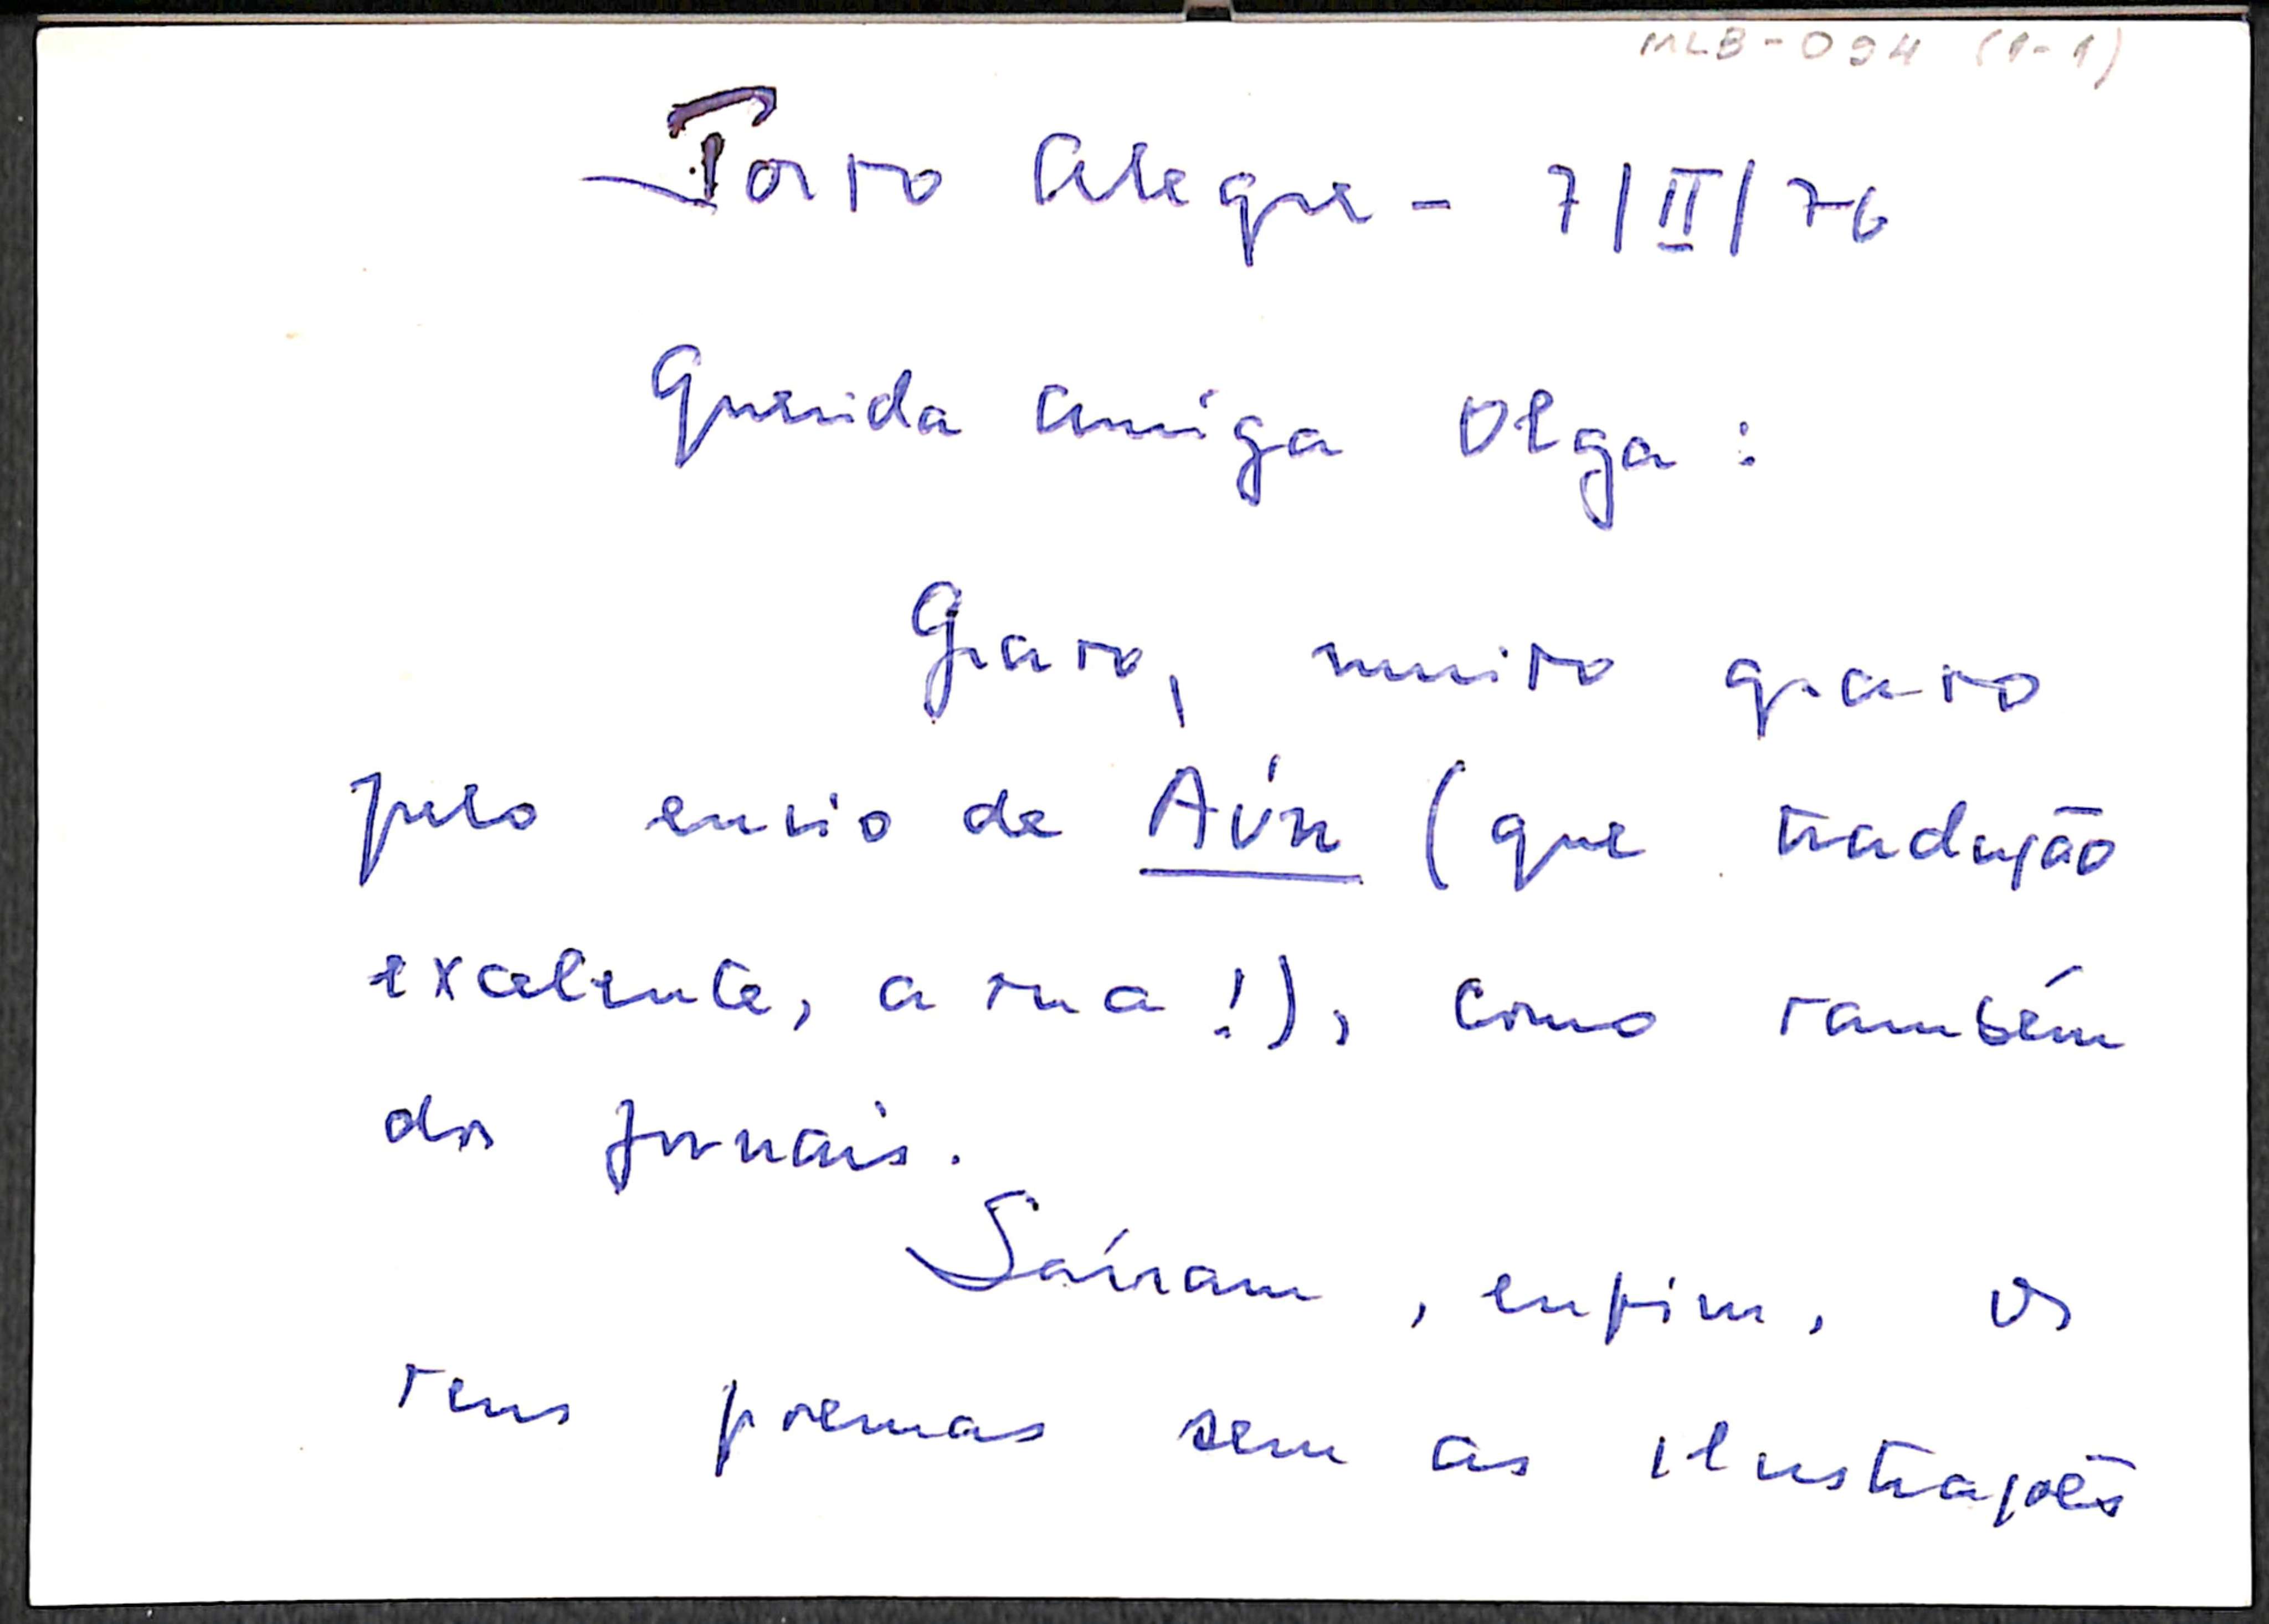 MLB-094 (1-1)
Porto Alegre - 7/II/76
Querida amiga Olga:
Grato, muito grato
pelo envio de Aún (que tradução
excelente, a tua!), como também
dos jornais.
Saíram, enfim, os
teus poemas sem as ilustrações